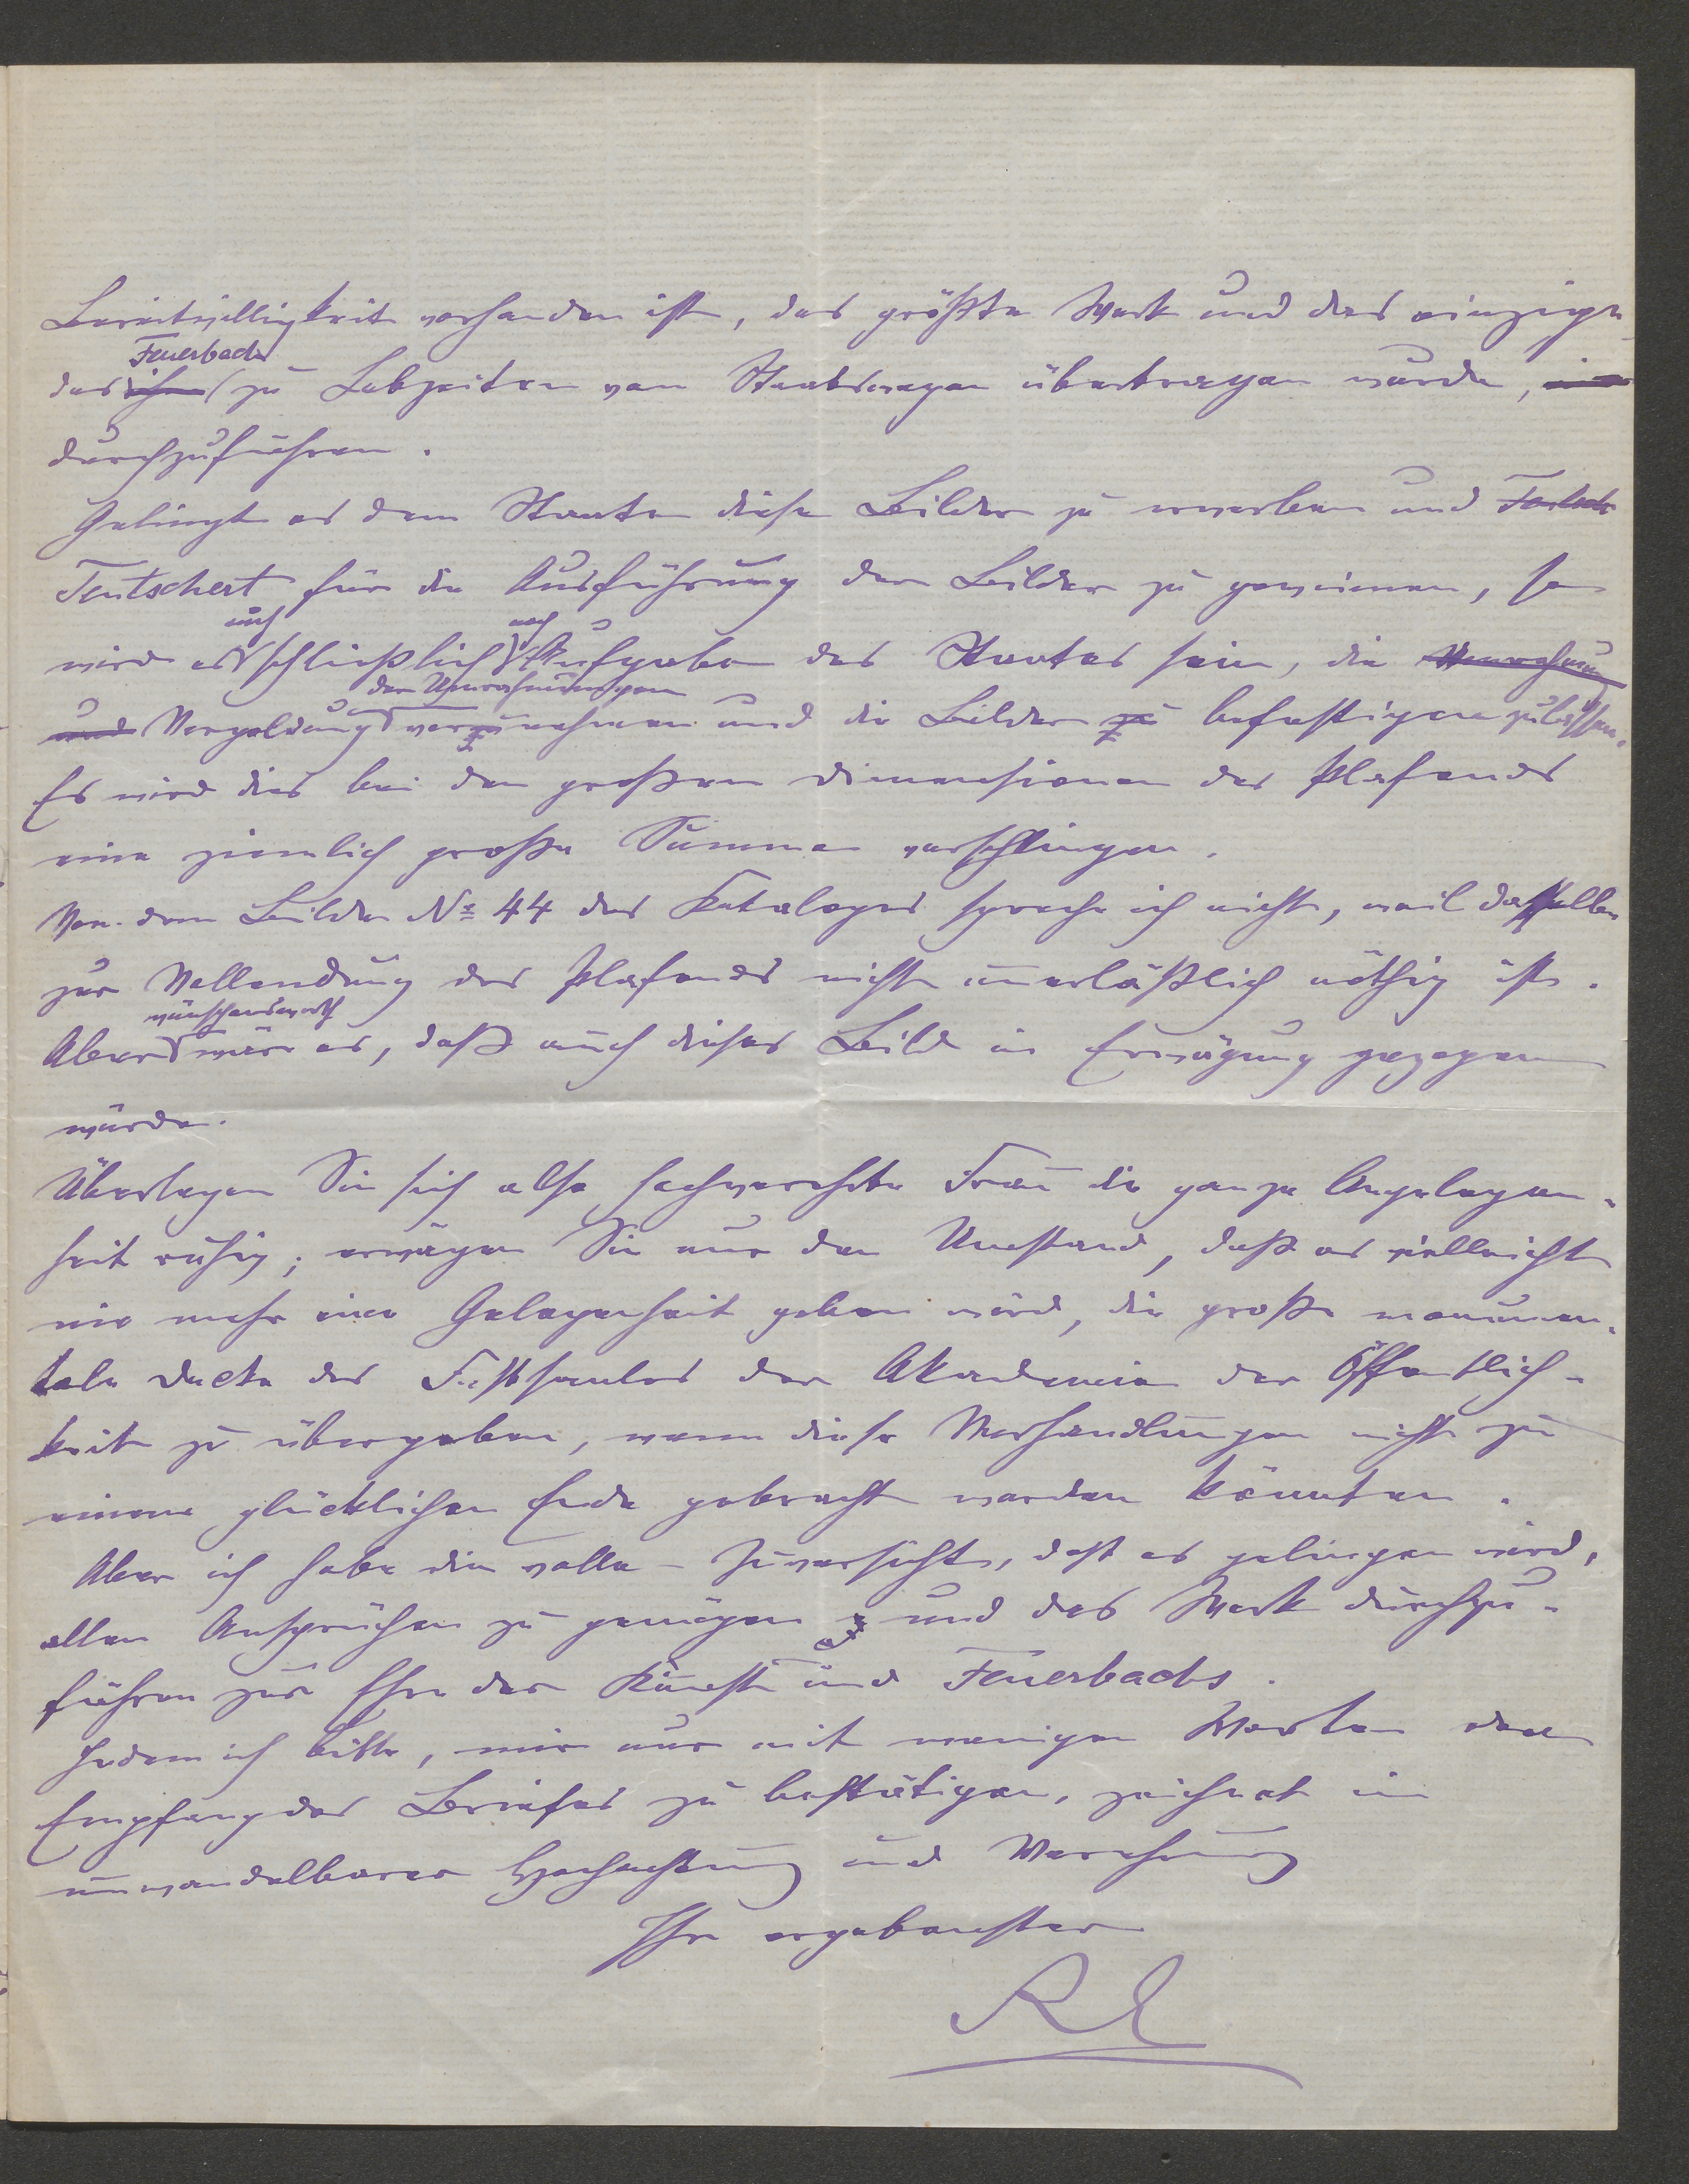 Bereitwilligkeit vorhanden ist, das größte Werk und das einzige
Feuerbach
das ihm zu Lebzeiten vom Staatswegen übertragen wurde,
durchzuführen.
Gelingt es dem Staate diese Bilder zu erwerben und
Tentschert für die Ausführung der Bilder zu gewinnen, so
auch noch
wird es schließlich Aufgabe des Staates sein, die Umrahmung
der Umrahmungen
und Vergoldung vorzunehmen und die Bilder zu befestigen zu lassen.
Es wird dies bei den großen Dimensionen des Plafonds
eine ziemlich große Summe verschlingen.
Von dem Bilde No 44 des Kataloges spreche ich nicht, weil dasselbe
zur Vollendung des Plafonds nicht unerläßlich nöthig ist.
wünschenswerth
Aber wäre es, daß auch dieses Bild in Erwägung gezogen
würde.
Überlegen Sie sich also hochverehrte Frau die ganze Angelegen-
heit ruhig; erwägen Sie nur den Umstand, daß es vielleicht
nie mehr eine Gelegenheit geben wird, die große monumen-
tale Decke des Festsaales der Akademie der Öffentlich-
keit zu übergeben, wenn diese Verhandlungen nicht zu
einem glücklichen Ende gebracht werden könnten.
Aber ich habe die volle Zuversicht, daß es gelingen wird,
allen Ansprüchen zu genügen und das Werk durchzu-
führen zur Ehre der Kunst und Feuerbachs.
Indem ich bitte, mir nur mit wenigen Worten den
Empfang des Briefes zu bestätigen, zeichnet in
unwandelbarer Hochachtung und Verehrung
Ihr ergebenster
RE